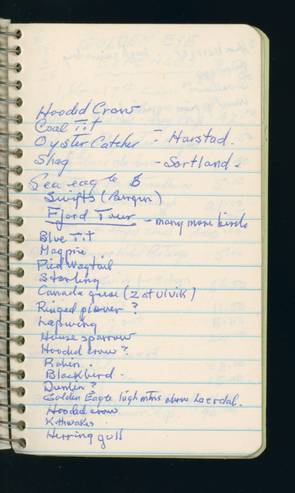 Hooded Crow
Coal Tit
Oyster Catcher - Harstad.
Shag - Sortland.
Sea eagle 8
Swifts (Bergen)
Fjord Tour - many more birds
Blue Tit
Magpie
Pied Wagtail
Starling
Canada geese (2 at Ulvik)
Ringed plover ?
Lapwing
House sparrow
Hooded crow ?
Robin.
Blackbird.
Dunlin ?
Golden Eagle high mtns above Laerdal.
Hooded crow
Kittiwakes
Herring gull